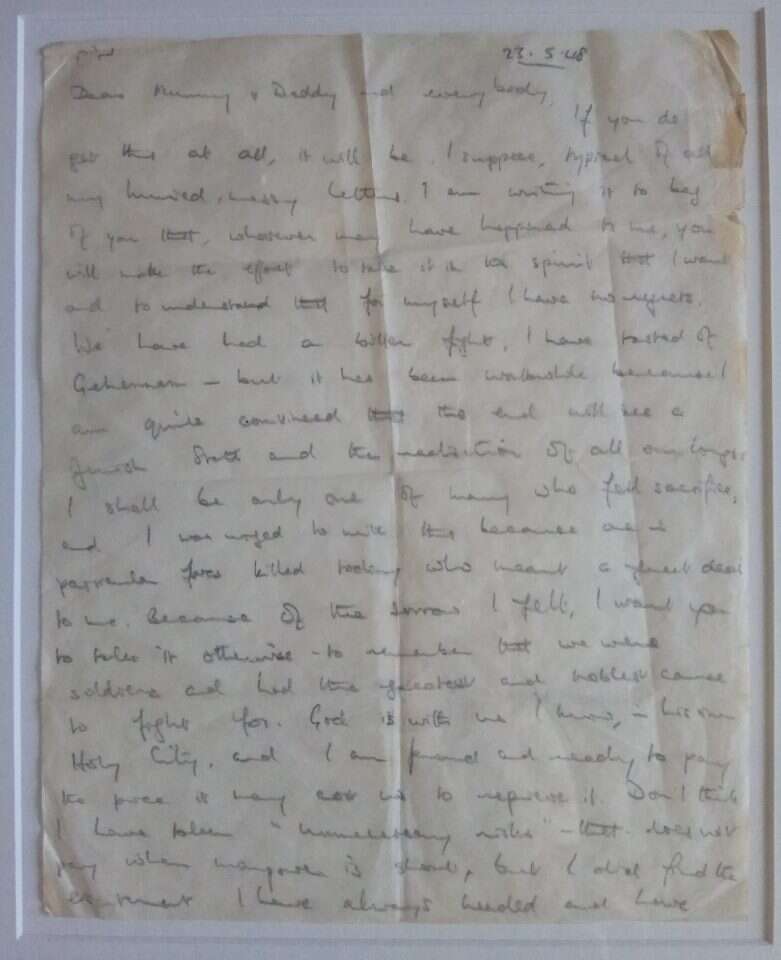 23.5.48
Dear Mummy & Daddy and everybody,
If you do
get this at all, it will be, I suppose, typical of all
my hurried, messy letters. I am writing it to beg
of you that, whatever may have happened to me, you
will make the effort to take it in the spirit that I want
and to understand that for myself I have no regrets.
We have had a bitter fight, I have tasted of
Gehennem – but it has been worthwhile because I
am quite convinced that the end will see a
Jewish State and the realisation of all our longings.
I shall be only one of many who fell sacrifice,
and I was urged to write this because one in
particular was killed today who meant a great deal
to me. Because of the sorrow I felt, I want you
to take it otherwise – to remember that we were
soldiers and had the greatest and noblest cause
to fight for. God is with us I know, in his own
Holy City, and I am proud and ready to pay
the price it may cost us to reprieve it. Don't think
I have taken "unnecessary risks" – that does not
pay when manpower is short, but I did find the
excitement I have always needed and have